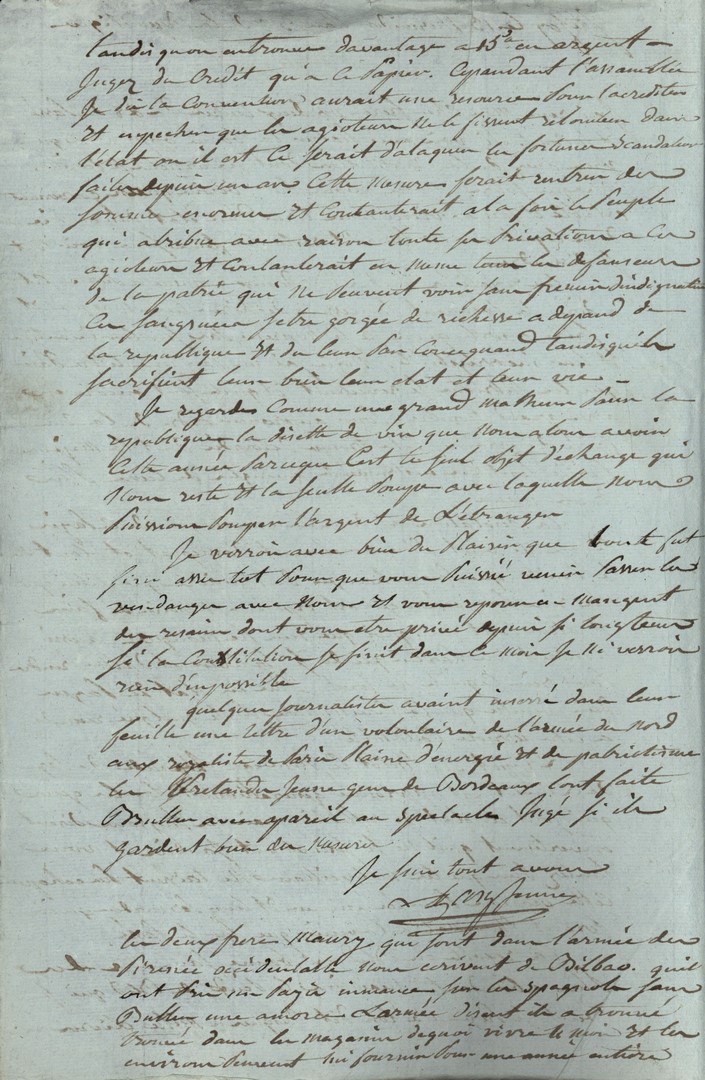 tandisquon entrouve davantage a 15d en argent –
Jugez du Credit qu'a ce Papier. Cepandant l'assamblée
Je dis la Convention aurait une resource pour lacrediter
et empecher que les agioteurs ne le fissent retomber dans
l'état ou il est Ce serait d'ataquer les fortunes scandaleuses
faites depuis un an Cette mesure ferait rentrer des
sommes enormes et Contanterait ala fois le Peuple
qui atribue avec raison toute ses Privations a Ces
agioteurs et Contanterait en meme tems les defanseurs
de la patrie qui ne Peuvent voir sans fremir d'indignation
Ces sangsues setre gorgée de richesse a depand de
la republique et du leur par Concequand tandisqu'ils
sacrifient leurs bien leur etat et leur vie –
Je regarde Comme une grand malheur Pour la
republique la disette de vin que nous alons avoir
Cette année Parceque C'est le seul objet d'échange qui
nous reste et la seulle Pompe avec laquelle nous
Puissions Pomper l'argent de L'étranger
Je verrois avec bien du Plaisir que tout fut
fini assee tot Pour que vous Puissié venir Passer les
vendanges avec nous et vous reposer en mangent
des resains dont vous etre privé depuis si longtems
si la Constitution se finit dans ce mois Je ni verrois
rien d'impossible
quelques Journalistes avaint inseré dans leur
feuille une lettre d'un volontaire de l'armée du Nord
aux royaliste de Paris Plaine d'énergié et de patriotisme
les Jeune gens de Bordeaux l'ont faite
Bruller avec apareil au spectacle Jugé si ils
gardent bien des mesures
Je suis tout avous
Jeune
les deux frere Maury qui sont dans l'armée des
Pirenée occidentalle nous ecrivent de Bilbao. quil
ont Pris un Païs inmance sur les Espagnols sans
Bruller une amorce L'armée disent ils a trouvé
dans les magasin dequoi vivre 6 moi et les
environs Peuvent lui fournir Pour une année entiere